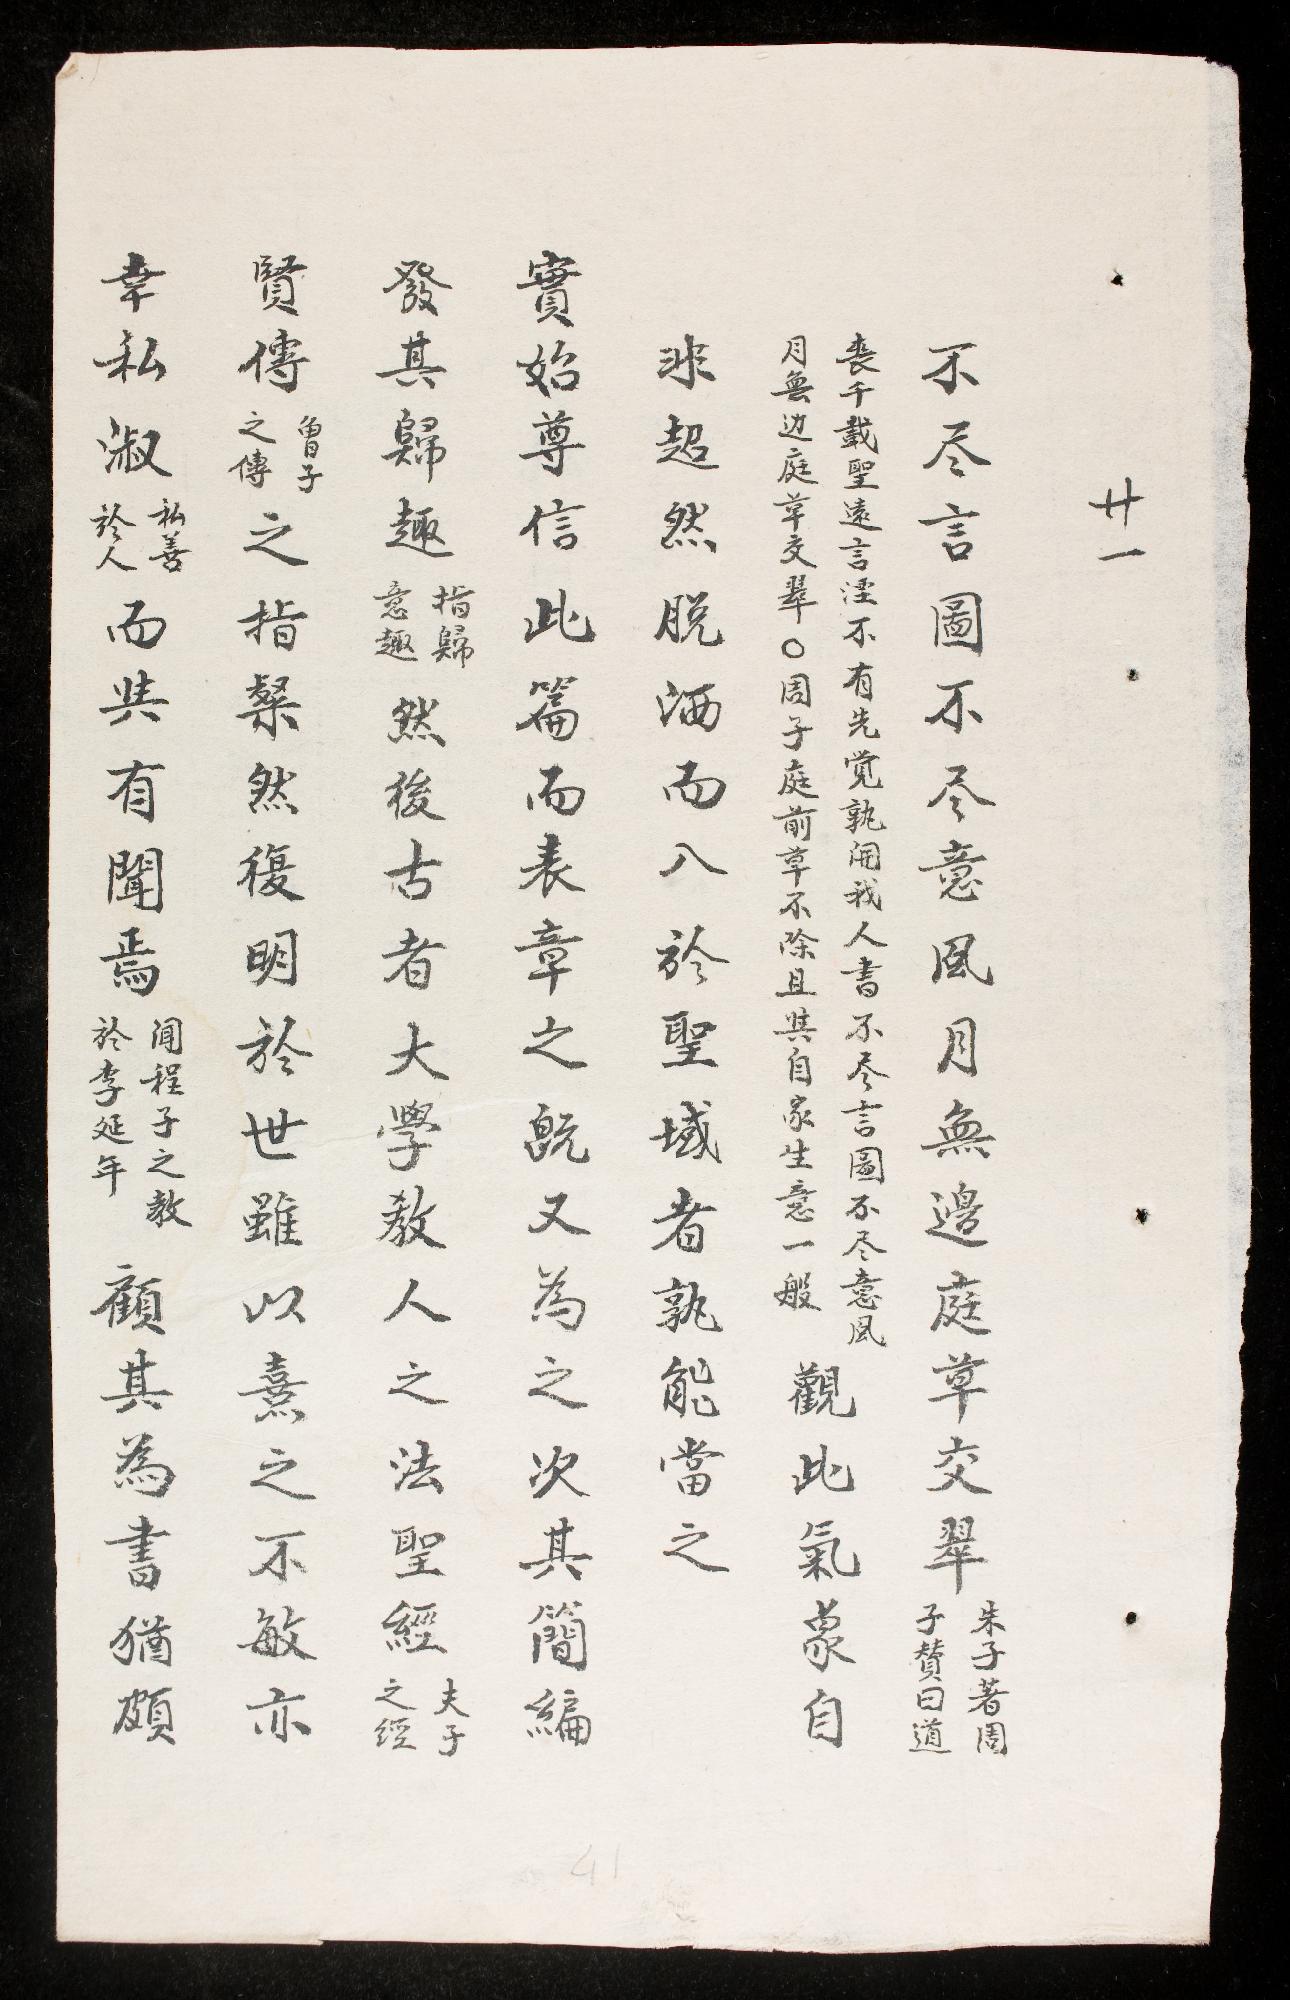 廿一
不尽言圖不尽意風月無邊庭草交翠朱子著周子賛曰道
丧千載聖遠言湮不有先覚孰開我人書不尽言圖不尽意風
月無边庭草交翠〇周子庭前草不除且與自家生意一般觀此氣象自
非超然脱洒而入於聖域者孰能當之
實始尊信此篇而表章之旣又為之次其簡編
發其歸趣指歸意趣然後古者大學教人之法聖經夫子之經
賢傳曾子之傳之指粲然復明於世雖以熹之不敏亦
幸私淑私善於人而與有聞焉聞程子之教於李延年顧其為書猶頗
41